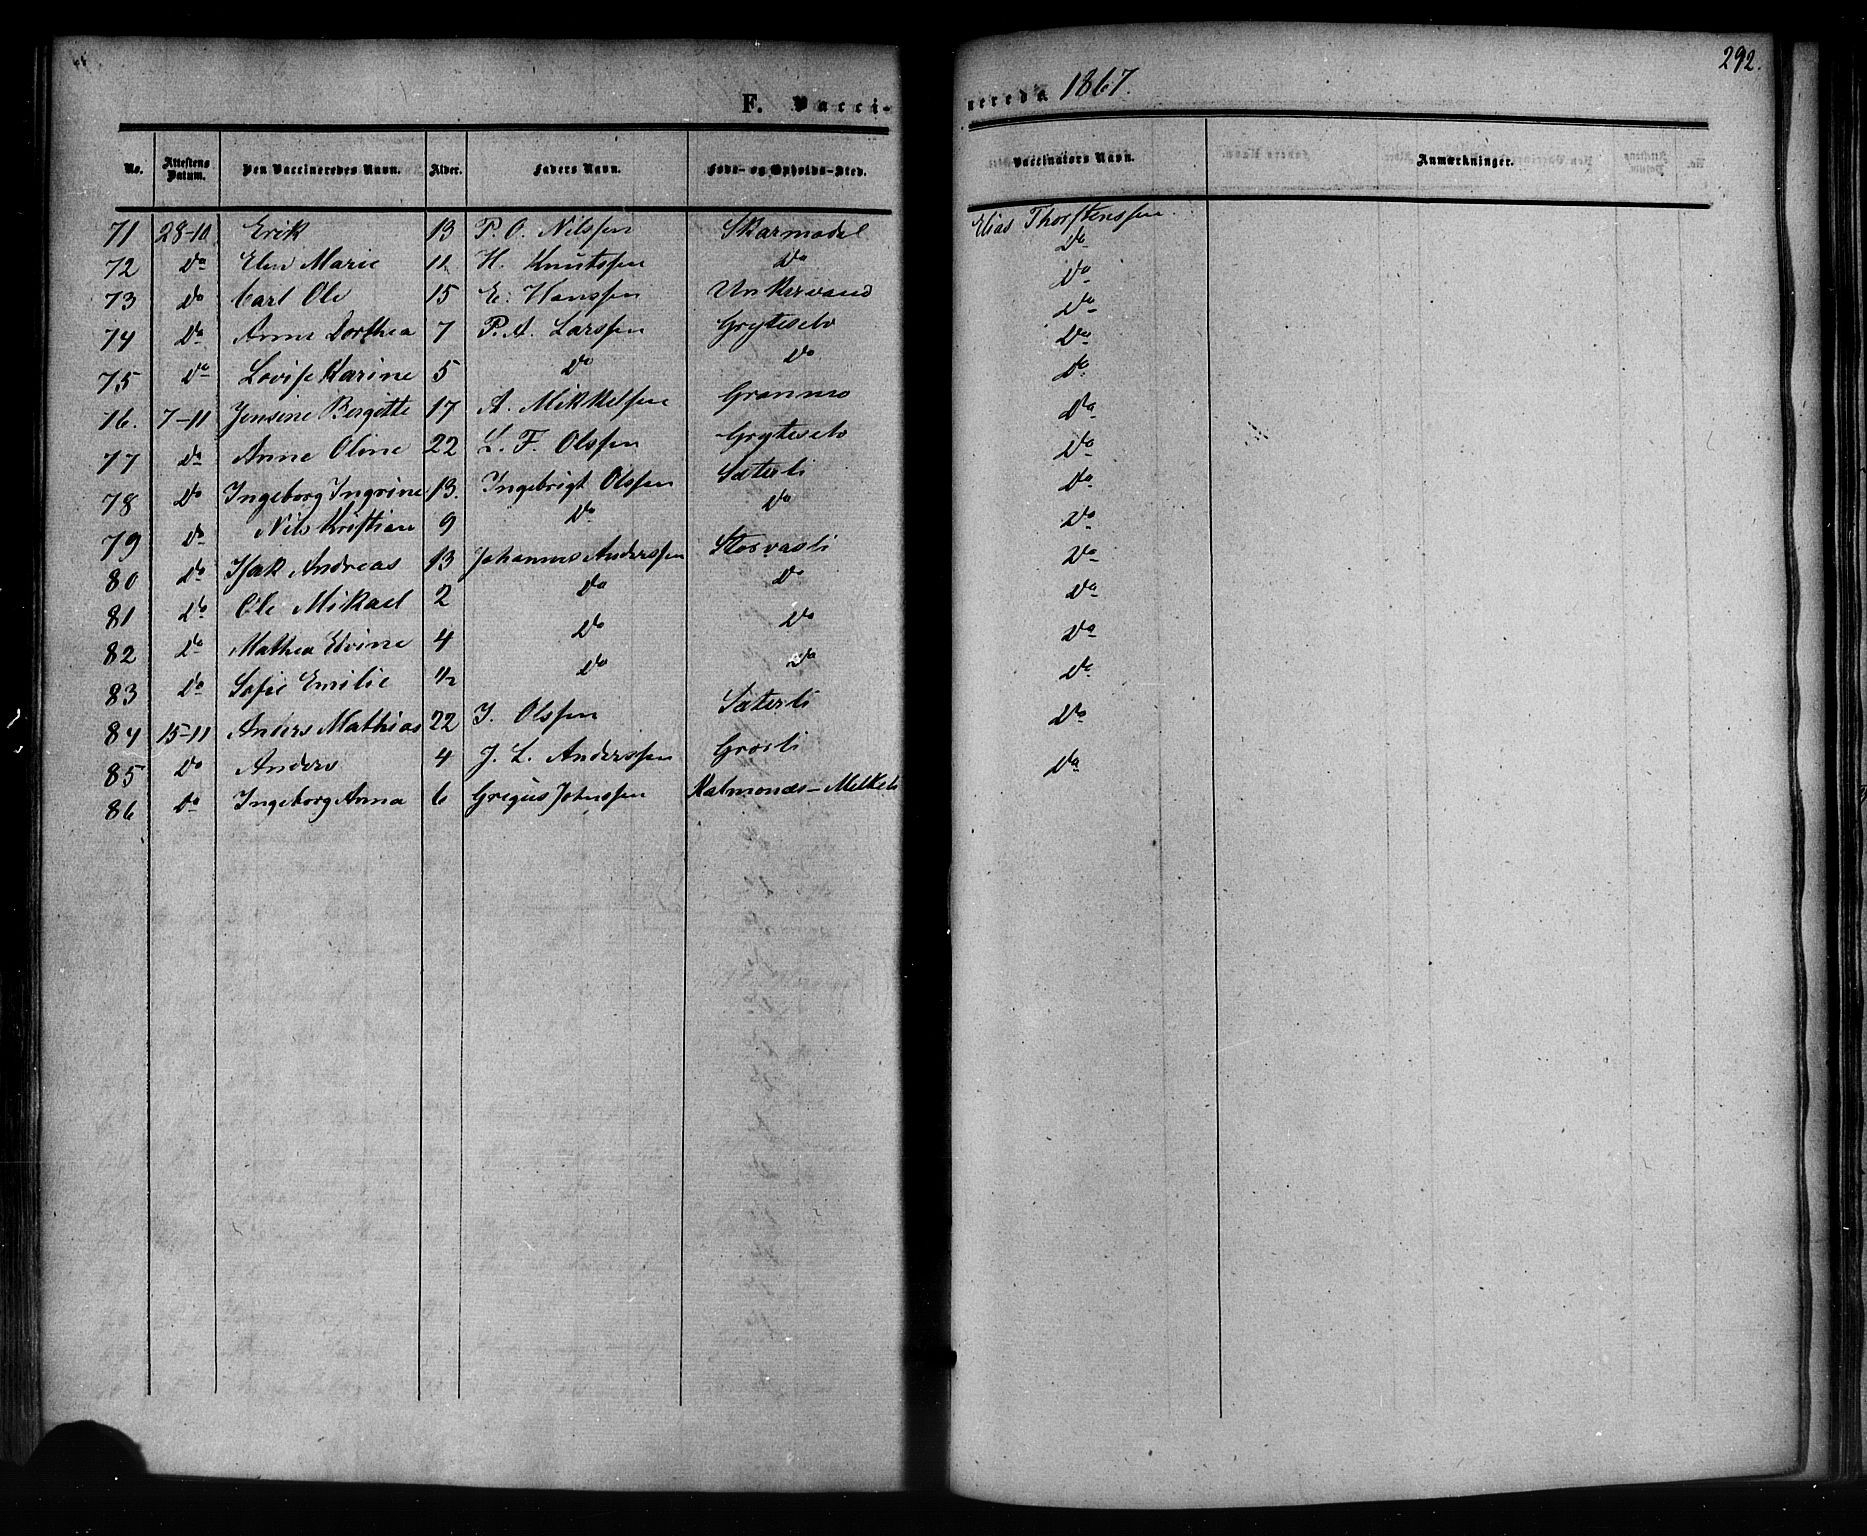 292.
F. Vacci-
nerede 1867.
No. Attestens Datum. Den Vaccineredes Navn. Alder. Faders Navn. Føde- og Opholds-Sted. Vaccinators Navn. Anmærkninger.
71 28-10 Erik 13 P. O. Nilssen Skarmodal Elias Thorstenssen.
72 Do Elen Marie 11 H. Knutssen Do Do
73 Do Carl Ole 15 E. Hanssen Unkervand Do
74 Do Anne Dorthea 7 P. A. Larssen Gryteselv Do
75 Do Lovise Karine 5 Do Do Do
76. 7-11 Jensine Bergitte 17 A. Mikkelsen Granmo Do
77 Do Anne Oline 22 L. F. Olssen Gryteselv Do
78 Do Ingeborg Ingrine 13. Ingebrigt Olssen Sæterli Do
79 Do Nils Kristian 9 Do Do Do
80 Do Isak Andreas 13 Johannes Anderssen Storvasli Do
81 Do Ole Mikael 2 Do Do Do
82 Do Mathea Elvine 4 Do Do Do
83 Do Sofie Emilie 1/2 Do Do Do
84 15-11 Anders Mathias 22 I. Olssen Sæterli Do
85 Do Anders 4 J. L. Anderssen Groli Do
86 Do Ingeborg Anna 6 Grigus Johnssen Do